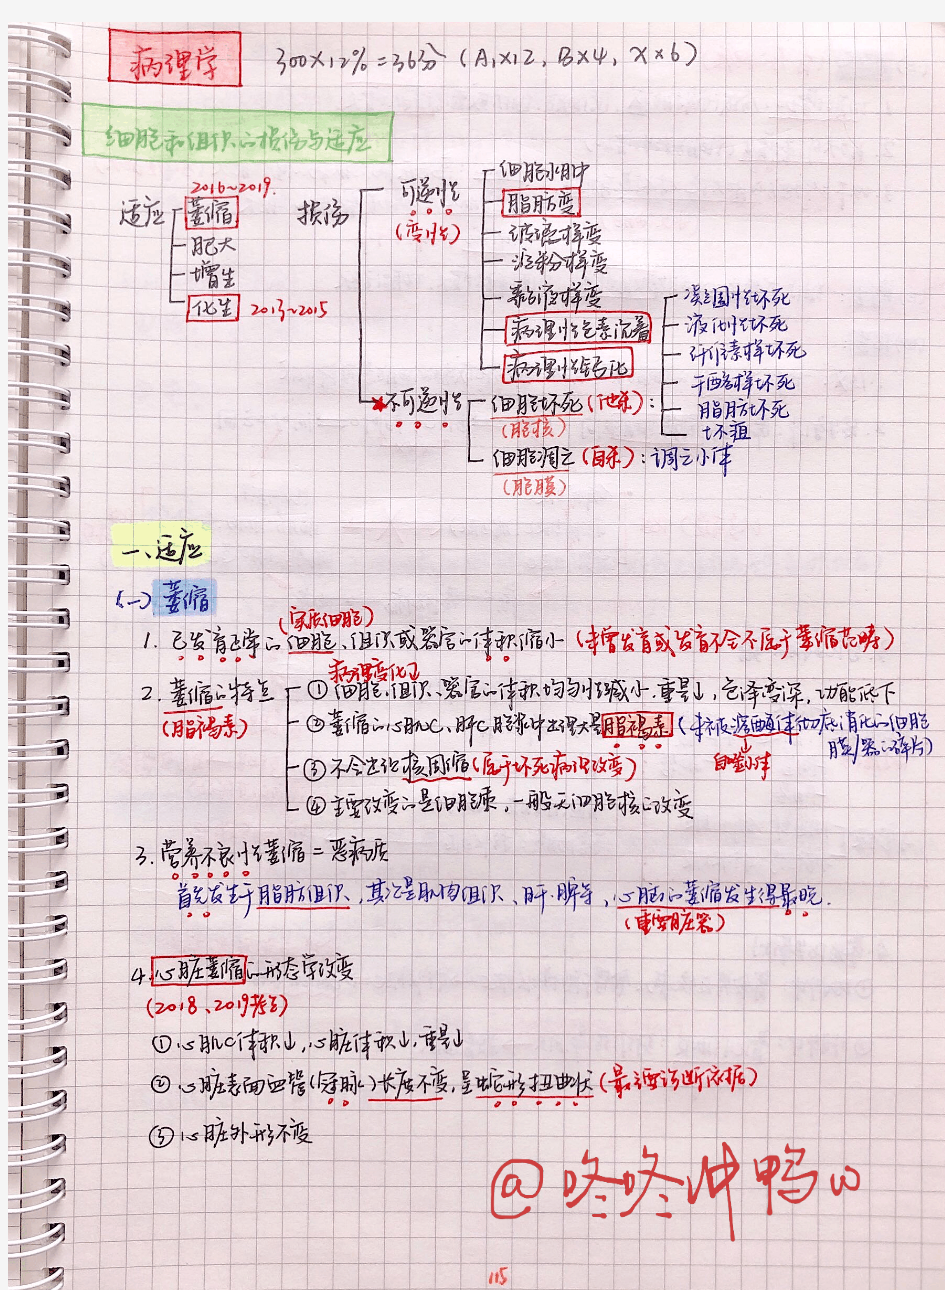 病理学 300×12%=36分 (A₁×12, B×4, X×6)
细胞和组织的损伤与适应
2016~2019.
适应
萎缩
肥大
增生
化生 2013~2015
损伤
可逆性
(变性)
细胞水肿
脂肪变
玻璃样变
淀粉样变
黏液样变
病理性色素沉着
病理性钙化
★不可逆性
细胞坏死(他杀):
(胞核)
凝固性坏死
液化性坏死
纤维素样坏死
干酪样坏死
脂肪坏死
坏疽
细胞凋亡(自杀):凋亡小体
(胞膜)
一、适应
(一) 萎缩
(实质细胞)
1. 已发育正常的细胞、组织或器官的体积缩小(未曾发育或发育不全不属于萎缩范畴)
病理变化
2. 萎缩的特点
(脂褐素)
① 细胞、组织、器官的体积均匀性减小.重量↓,色泽变深,功能低下
② 萎缩的心肌C,肝C胞浆中出现大量脂褐素(未被溶酶体彻底消化的细胞
膜/器的碎片)
自噬小体
③ 不会出现核固缩(属于坏死病的改变)
④ 主要改变的是细胞质,一般无细胞核的改变
3. 营养不良性萎缩=恶病质
首先发生于脂肪组织,其次是肌肉组织、肝.脾等,心脏的萎缩发生得最晚.
(重要脏器)
4. 心脏萎缩的形态学改变
(2018、2019考点)
① 心肌C体积↓,心脏体积↓,重量↓
② 心脏表面血管(冠脉)长度不变,呈蛇形扭曲状(最主要诊断依据)
③ 心脏外形不变
@咚咚冲鸭ω
115